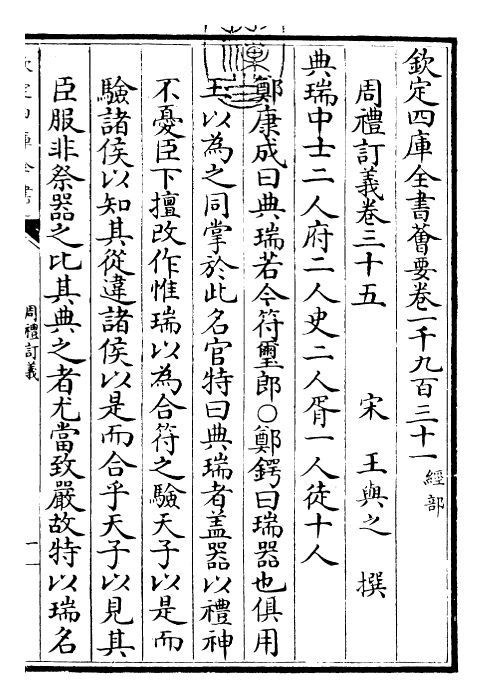 欽定四庫全書薈要卷一千九百三十一 經部
周禮訂義卷三十五 宋 王與之 撰
典瑞中士二人府二人史二人胥一人徒十人
鄭康成曰典瑞若今符璽郎○鄭鍔曰瑞器也俱用
王以為之同掌於此名官特曰典瑞者盖器以禮神
不憂臣下擅改作惟瑞以為合符之驗天子以是而
驗諸侯以知其從違諸侯以是而合乎天子以見其
臣服非祭器之比其典之者尤當致嚴故特以瑞名
欽定四庫全書
周禮訂義
一